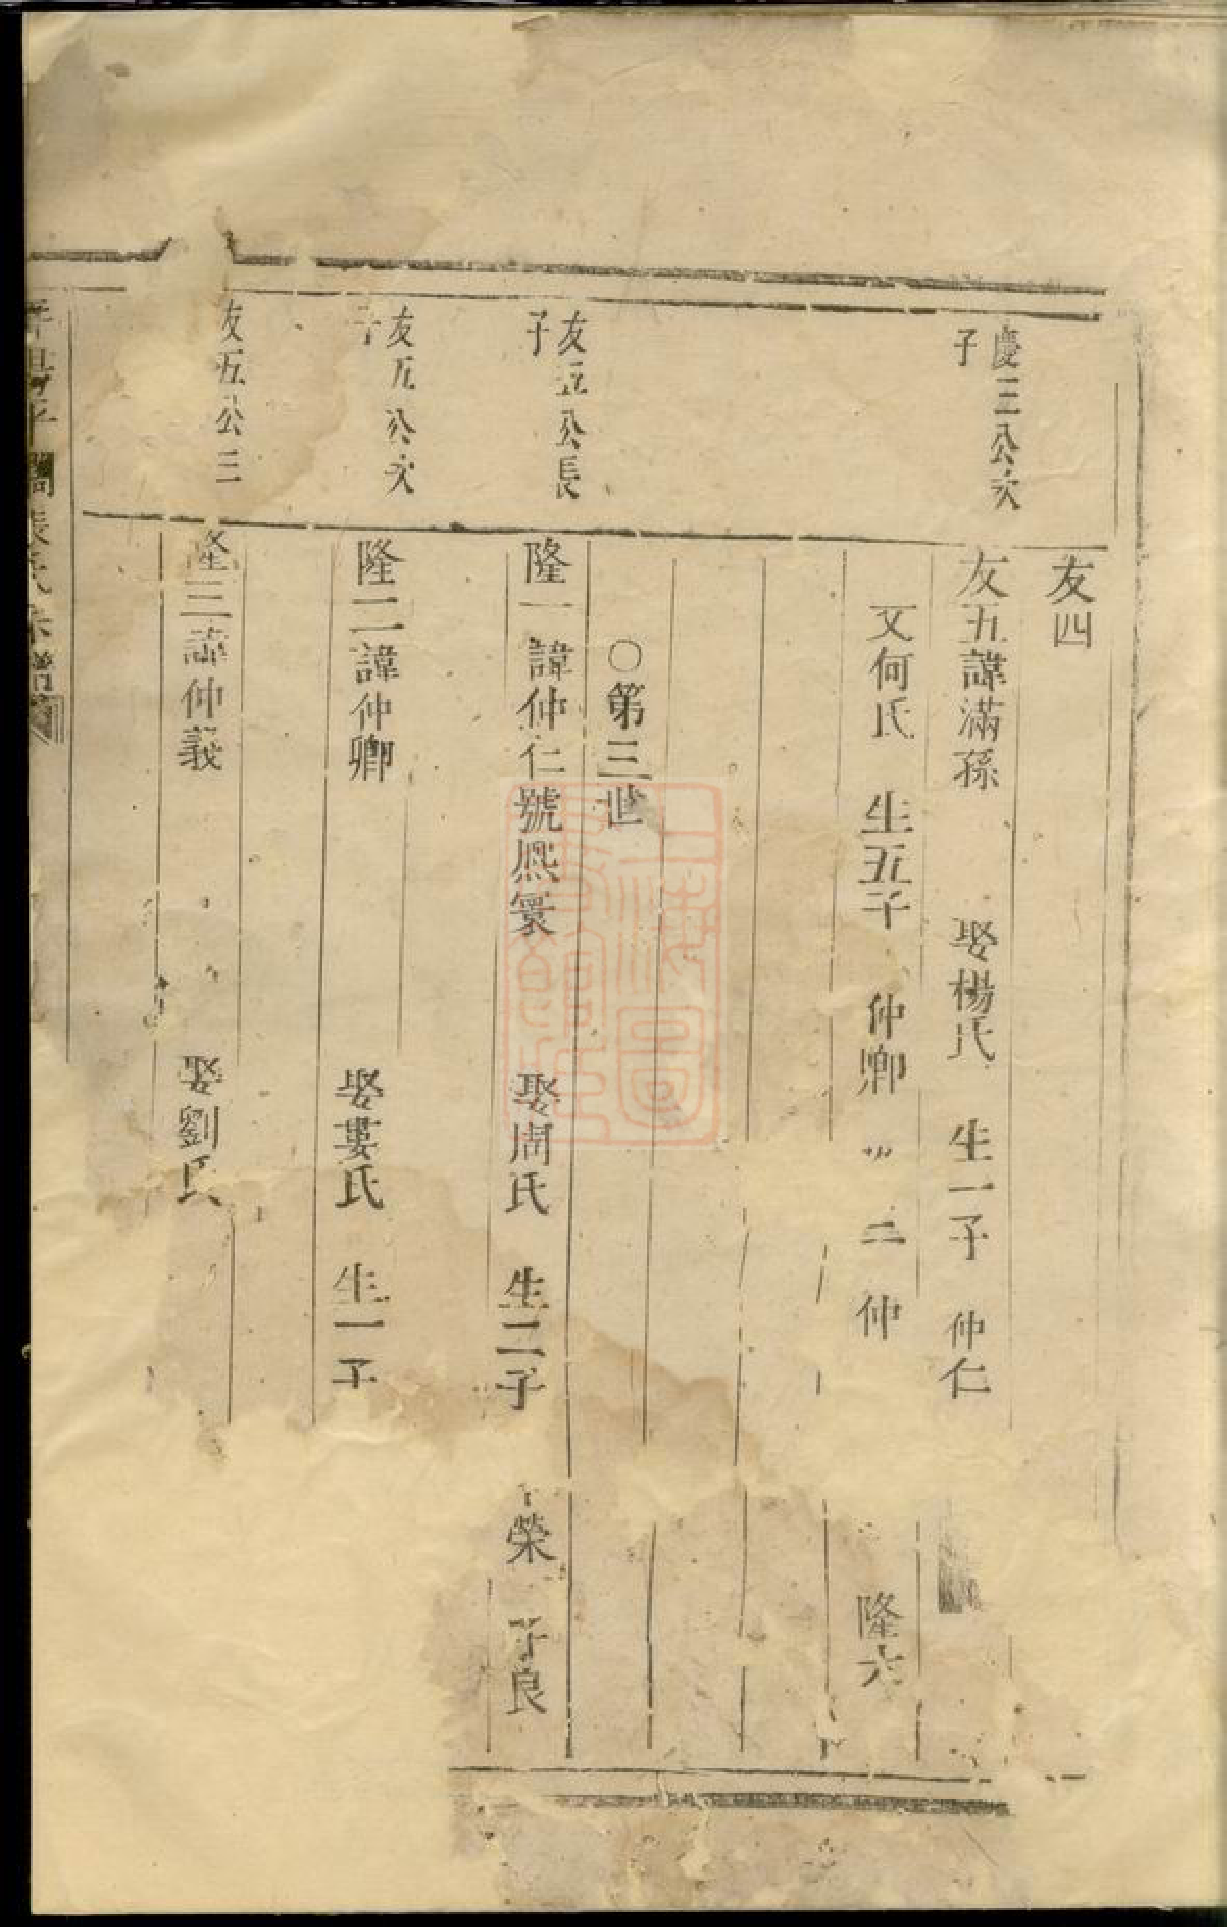 友四
慶三公次
子
友五諱滿孫 娶楊氏 生一子 仲仁
又何氏 生五子 仲卿 二 仲 隆六
○第三世
友五公長
子
隆一諱仲仁號熈寰 娶周氏 生二子 榮 子良
友五公次
子
隆二諱仲卿 娶婁氏 生一子
友五公三
隆三諱仲義 娶劉氏
上海圖
書館藏